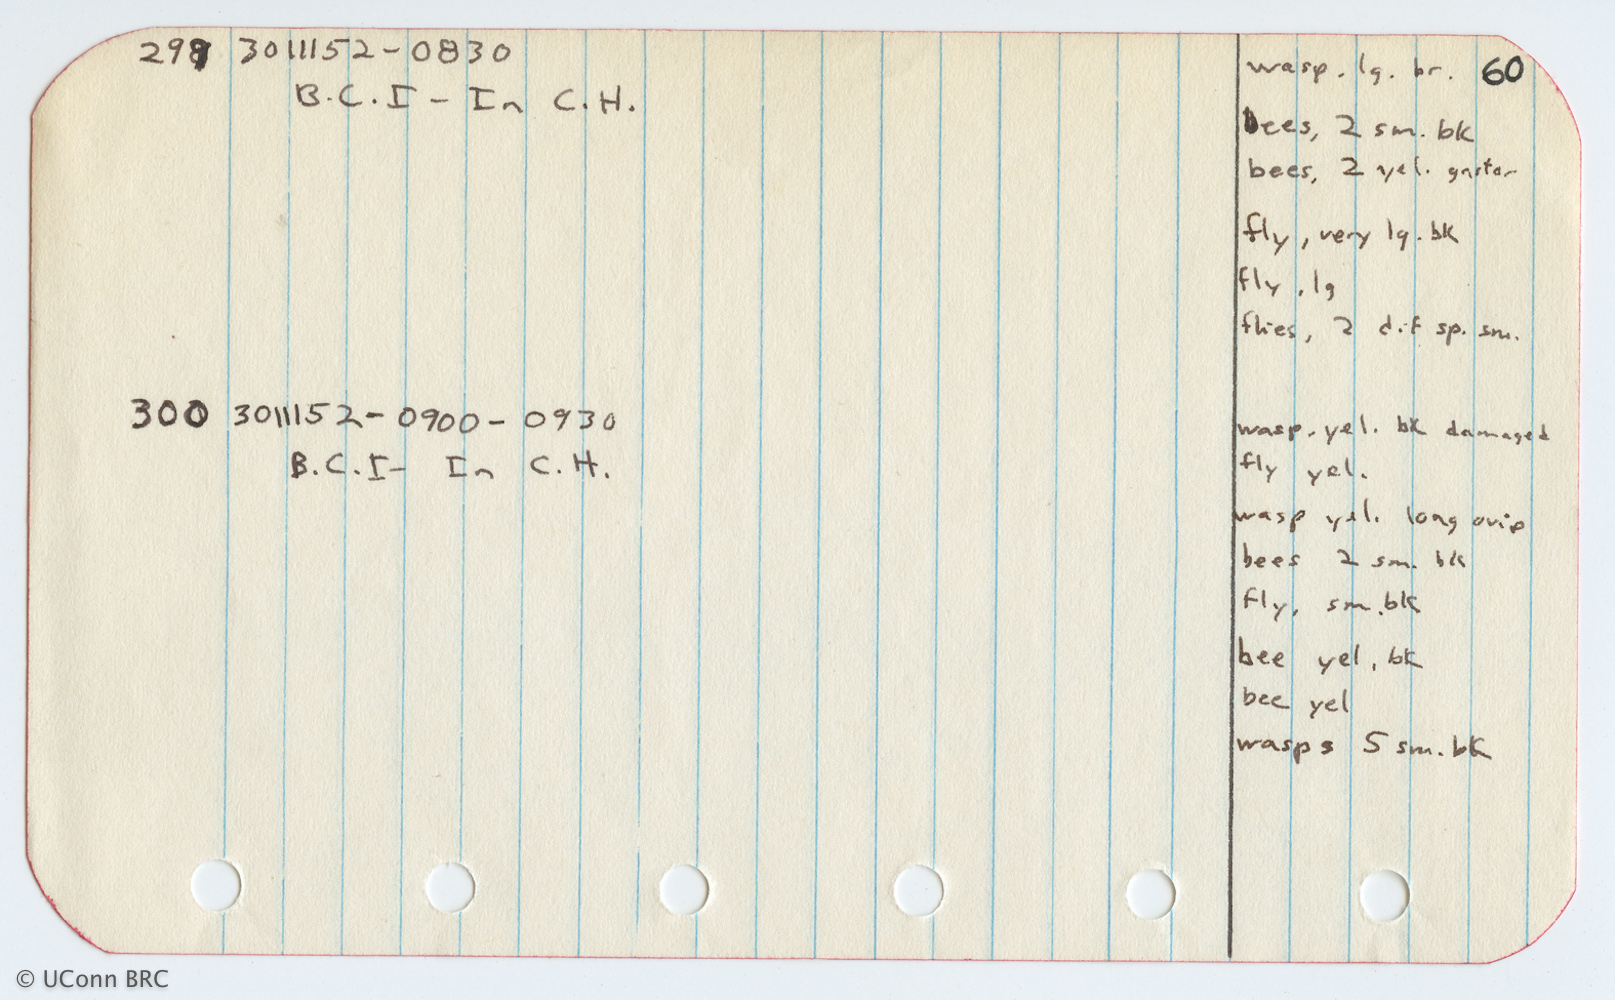 299 3011152-0830
B.C.I - In C.H.
60
wasp. lg. br.
bees, 2 sm. bk
bees, 2 yel. gaster
fly, very lg. bk
fly, lg
flies, 2 dif sp. sm.
300 3011152-0900-0930
B.C.I- In C.H.
wasp. yel. bk damaged
fly yel.
wasp yel. long ovip
bees 2 sm. bk
fly, sm. bk
bee yel, bk
bee yel
wasps 5 sm. bk
© UConn BRC